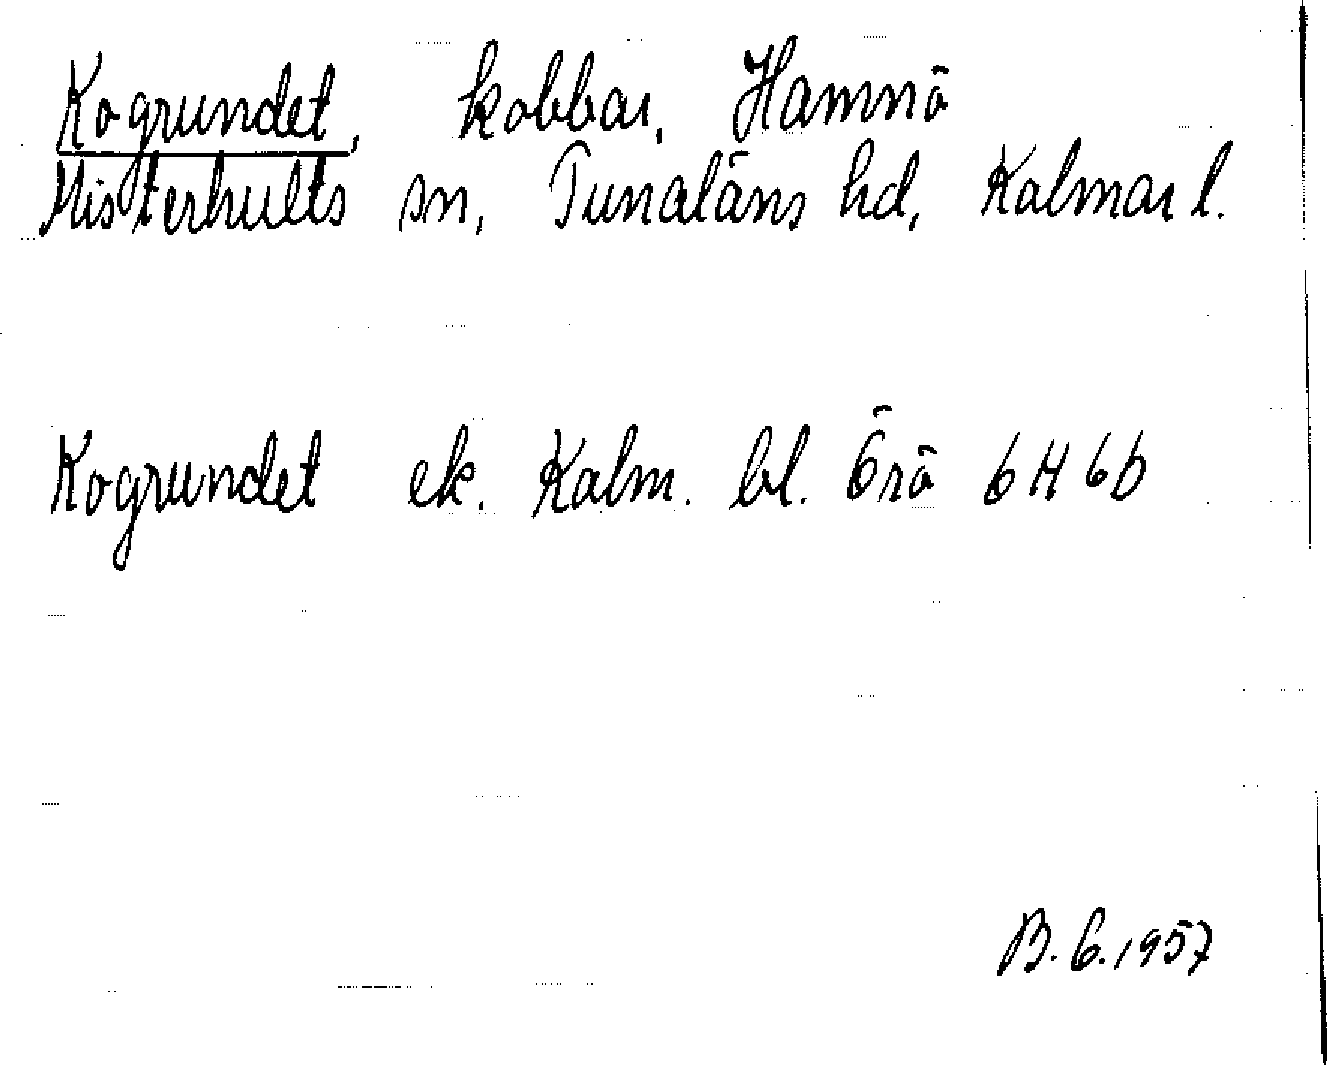 Kogrundet, kobbar, Hamnö
Misterhults sn, Tunaläns hd, Kalmar l.
Kogrundet ek. Kalm. bl. Örö 6H6b
B.G.1957